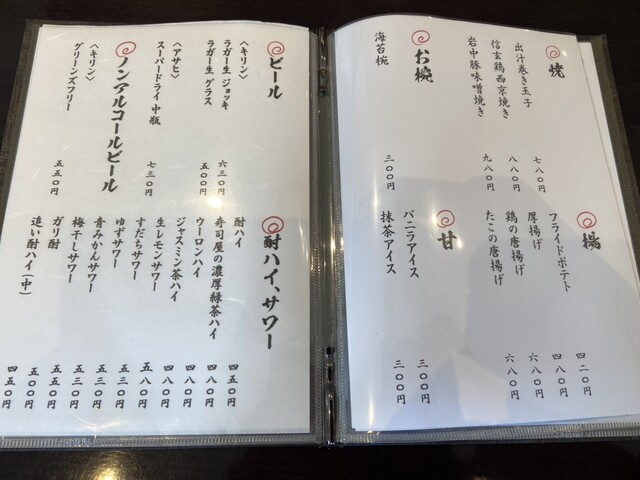 焼
出汁巻き玉子 七八〇円
信玄鶏西京焼き 八八〇円
岩中豚味噌焼き 九八〇円
お椀
海苔椀 三〇〇円
揚
フライドポテト 四二〇円
厚揚げ 四八〇円
鶏の唐揚げ 六八〇円
たこの唐揚げ 六八〇円
甘
バニラアイス 三〇〇円
抹茶アイス 三〇〇円
ビール
〈キリン〉
ラガー生 ジョッキ 六三〇円
ラガー生 グラス 五〇〇円
〈アサヒ〉
スーパードライ 中瓶 七三〇円
ノンアルコールビール
〈キリン〉
グリーンズフリー 五五〇円
酎ハイ、サワー
酎ハイ 四五〇円
寿司屋の濃厚緑茶ハイ 四八〇円
ウーロンハイ 四八〇円
ジャスミン茶ハイ 四八〇円
生レモンサワー 五八〇円
すだちサワー 五三〇円
ゆずサワー 五三〇円
青みかんサワー 五三〇円
梅干しサワー 五三〇円
ガリ酎 五〇〇円
追い酎ハイ(中) 四五〇円